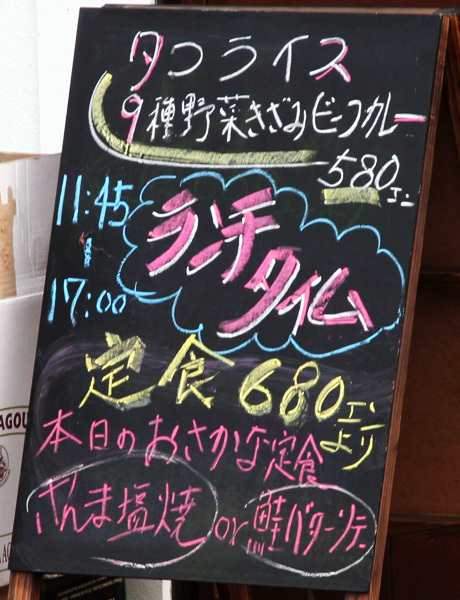 タコライス
9種野菜きざみビーフカレー
580エン
11:45
~
17:00
ランチ
タイム
定食680エンより
本日のおさかな定食
さんま塩焼or鮭バターソテー
AGOU